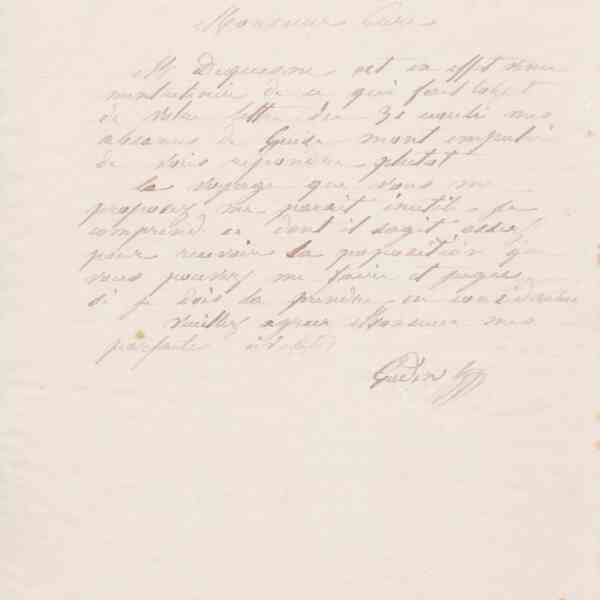 Monsieur Cure
M Duquesne est en effet venu
mentretenir de ce qui fait lobjet
de votre lettre du 30 mes
absences de Guise mont empeché
de vous repondre plutot
Le voyage que vous me
proposez me parait inutile je
comprend ce dont il sagit assez
pour recevoir la proposition que
vous pouvez me faire et juger
si je dois la prendre en consideration
Veuillez agreer Monsieur mes
parfaite
Godin